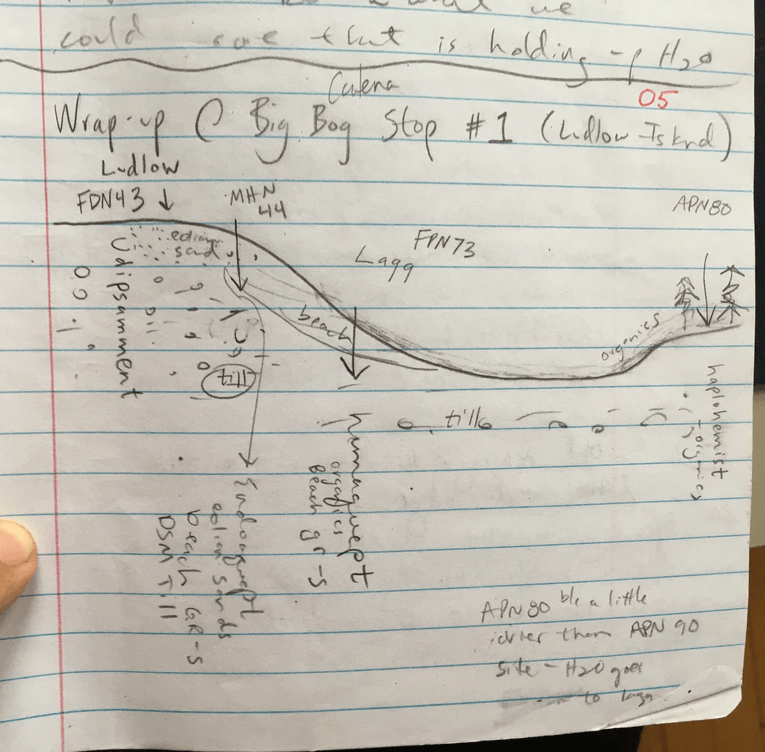 could see that is holding up H2O
Catena
05
Wrap-up @ Big Bog Stop #1 (Ludlow Island)
Ludlow
FDN43
MHN
44
APN80
FPN73
Lagg
eolian
sand
beach
organics
till
till
Udipsamment
Endoaquept
eolian sands
beach GR-S
DSM Till
humaquept
organics
Beach gr-S
haplohemist
organics
APN80 b/c a little
drier than APN 90
site - H2O goes
to lagg